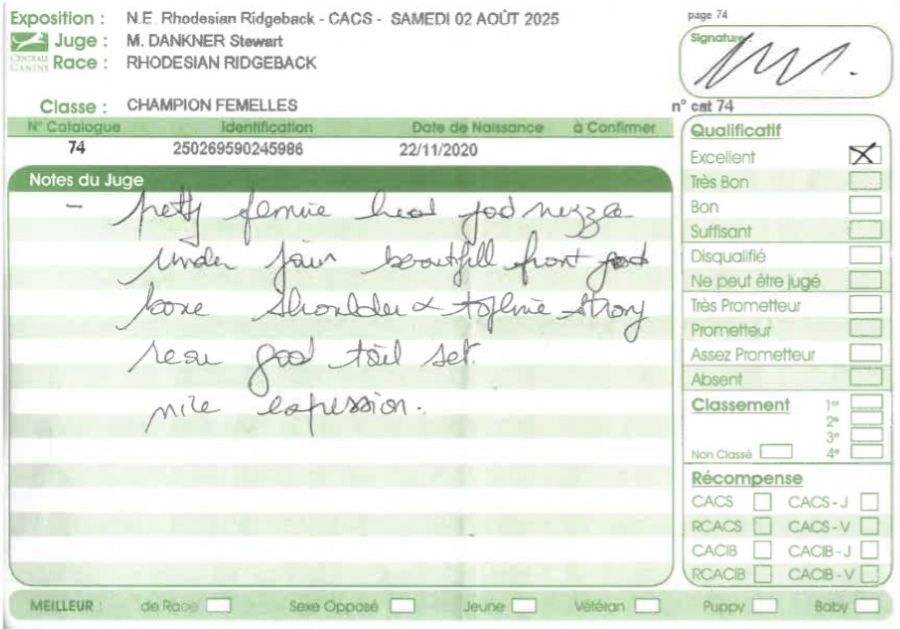 Exposition : N.E. Rhodesian Ridgeback - CACS - SAMEDI 02 AOÛT 2025
page 74
Juge : M. DANKNER Stewart
Signature
CENTRALE CANINE
Race : RHODESIAN RIDGEBACK
Classe : CHAMPION FEMELLES
n° cat 74
N° Catalogue Identification Date de Naissance à Confirmer
74 250269590245986 22/11/2020
Notes du Juge
- petty femine head god mezza
under jawn beoutifill front good
bone shoulder & topline strong
rear good tail set.
nice expression.
Qualificatif
Excellent X
Très Bon
Bon
Suffisant
Disqualifié
Ne peut être jugé
Très Prometteur
Prometteur
Assez Prometteur
Absent
Classement 1er
2e
3e
Non Classé 4e
Récompense
CACS CACS - J
RCACS CACS - V
CACIB CACIB - J
RCACIB CACIB - V
MEILLEUR : de Race Sexe Opposé Jeune Vétéran Puppy Baby